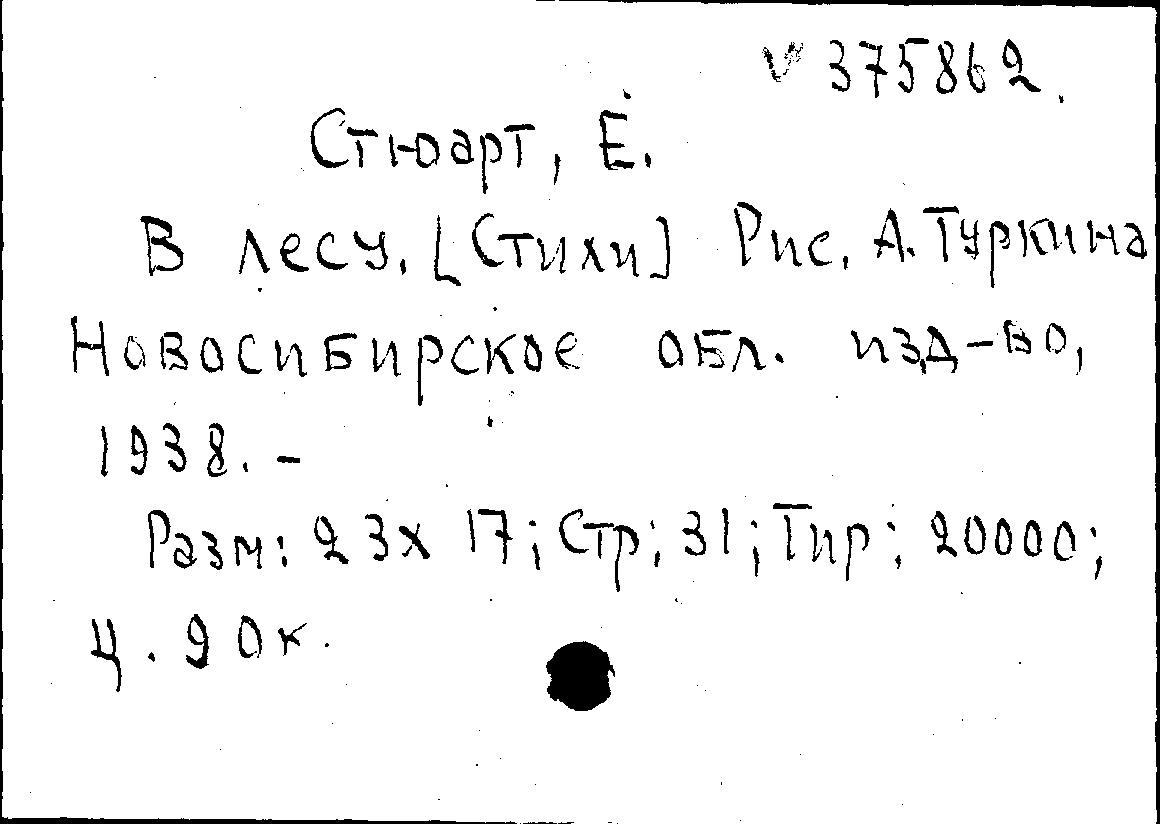 V 375862.
Стюарт, Е.
В лесу. [Стихи] Рис. А. Туркина
Новосибирское обл. изд-во,
1938. -
Разм: 23х 17; Стр: 31; Тир: 20000;
Ц. 90к.